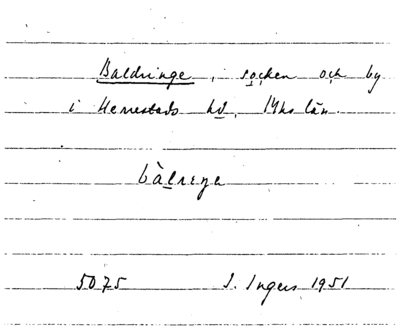 Baldringe, socken och by
i Herrestads hd, Mhs län.
bàlreŋa
5075 I. Ingers 1951